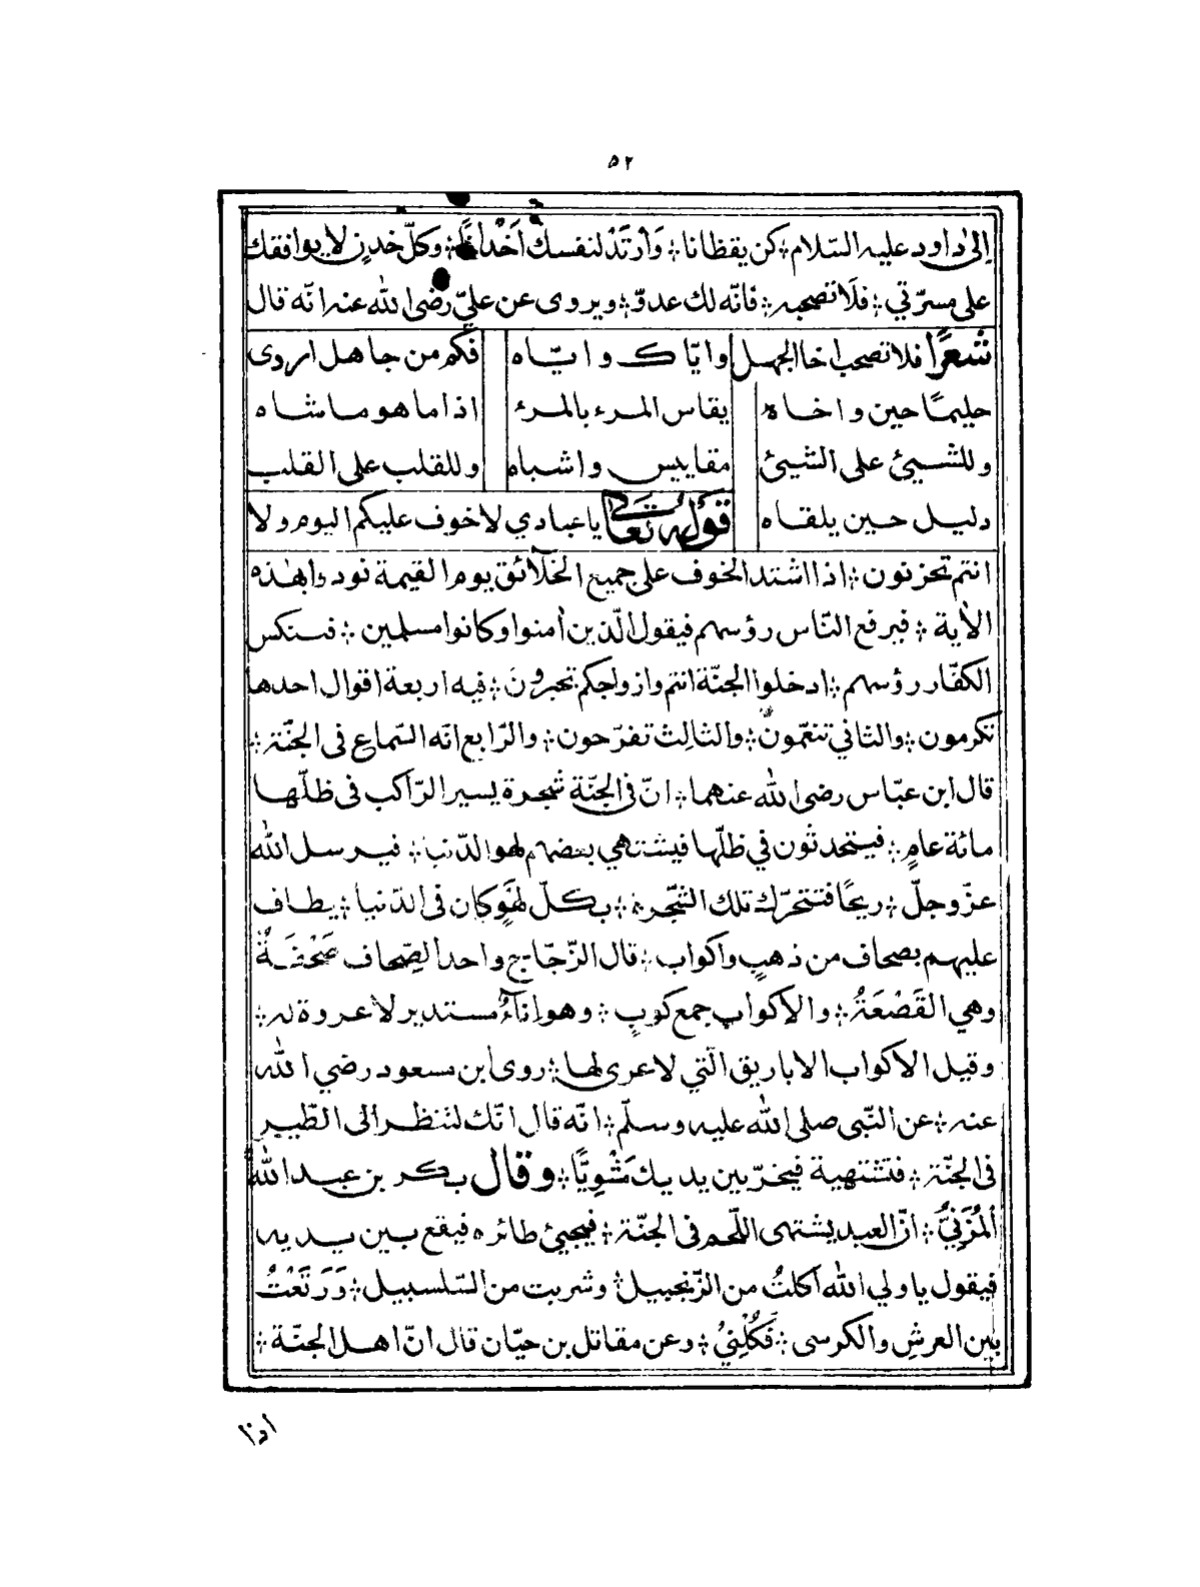 ٥٢
إلى داود عليه السّلام ؞ كن يقظانا ؞ وَارْتَدْ لنفسك اَخْدانًا ؞ وكلّ خدنٍ لا يوافقك
على مسرّتي ؞ فلَا تصحبه ؞ فانّه لك عدوّ ؞ ويروى عن عليّ رضى الله عنه انّه قال
شعرًا فلا تصحب اخا الجهل وايّاك وايّاه فكم من جاهل اردى
حليمًا حين واخاه يقاس المرء بالمرء اذا ما هو ماشاه
وللشيئ على الشيئ مقاييس واشباه وللقلب على القلب
دليل حين يلقاه قَوْلُه تَعَالى يا عبادي لا خوف عليكم اليوم ولا
انتم تحزنون ؞ اذا اشتد الخوف على جميع الخلآئق يوم القيمة نودوا بهذه
الاٰية ؞ فيرفع النّاس رؤسهم فيقول الّذين اٰمنوا وكانوا مسلمين ؞ فينكس
الكفّار رؤسهم ؞ ادخلوا الجنّة انتم وازواجكم تحبرونَ ؞ فيه اربعة اقوال احدها
تكرمون ؞ والثاني تنعّمون ؞ والثالِث تفرّحون ؞ والرّابع انّه السّماع فى الجنّة ؞
قال ابن عبّاس رضى الله عنهما ؞ انّ فى الجنّة شجرة يسير الرّاكب فى ظلّها
مائة عامٍ ؞ فيتحدثون في ظلّها فيشتهي بعضهم لهو الدّنيا ؞ فيرسل الله
عزّ وجلّ ؞ ريحًا فتتحرّك تلك الشّجرة ؞ بكلّ لهَوٍ كان فى الدّنيا ؞ يطاف
عليهم بصحاف من ذهبٍ واكواب ؞ قال الزّجّاج واحد الصِّحاف صَحْفَةٌ
وهي القَصْعَةُ ؞ والاكواب جمع كوبٍ ؞ وهو اناۤءٌ مستدير لا عروة له ؞
وقيل الاكواب الاباريق الّتي لا عرى لها ؞ روى ابن مسعود رضي الله
عنه ؞ عن النّبى صلى الله عليه وسلّم ؞ انّه قال انّك لتنظر الى الطّير
فى الجنّة ؞ فتشتهية فيخرّ بين يديك مَشْوِيًّا ؞ وقال بكر بن عبد الله
اَلمُزَنِيُّ ؞ انّ العبد يشتهى اللّحم فى الجنّة ؞ فيجيئ طائره فيقع بين يديه
فيقول يا ولي الله اَكلتُ من الزّنجبيل ؞ وشربت من السّلسبيل ؞ وَرَتَعْتُ
بين العرش والكرسى ؞ فَكُلْنِيْ ؞ وعن مقاتل بن حيّان قال انّ اهل الجنّة ؞
اذا